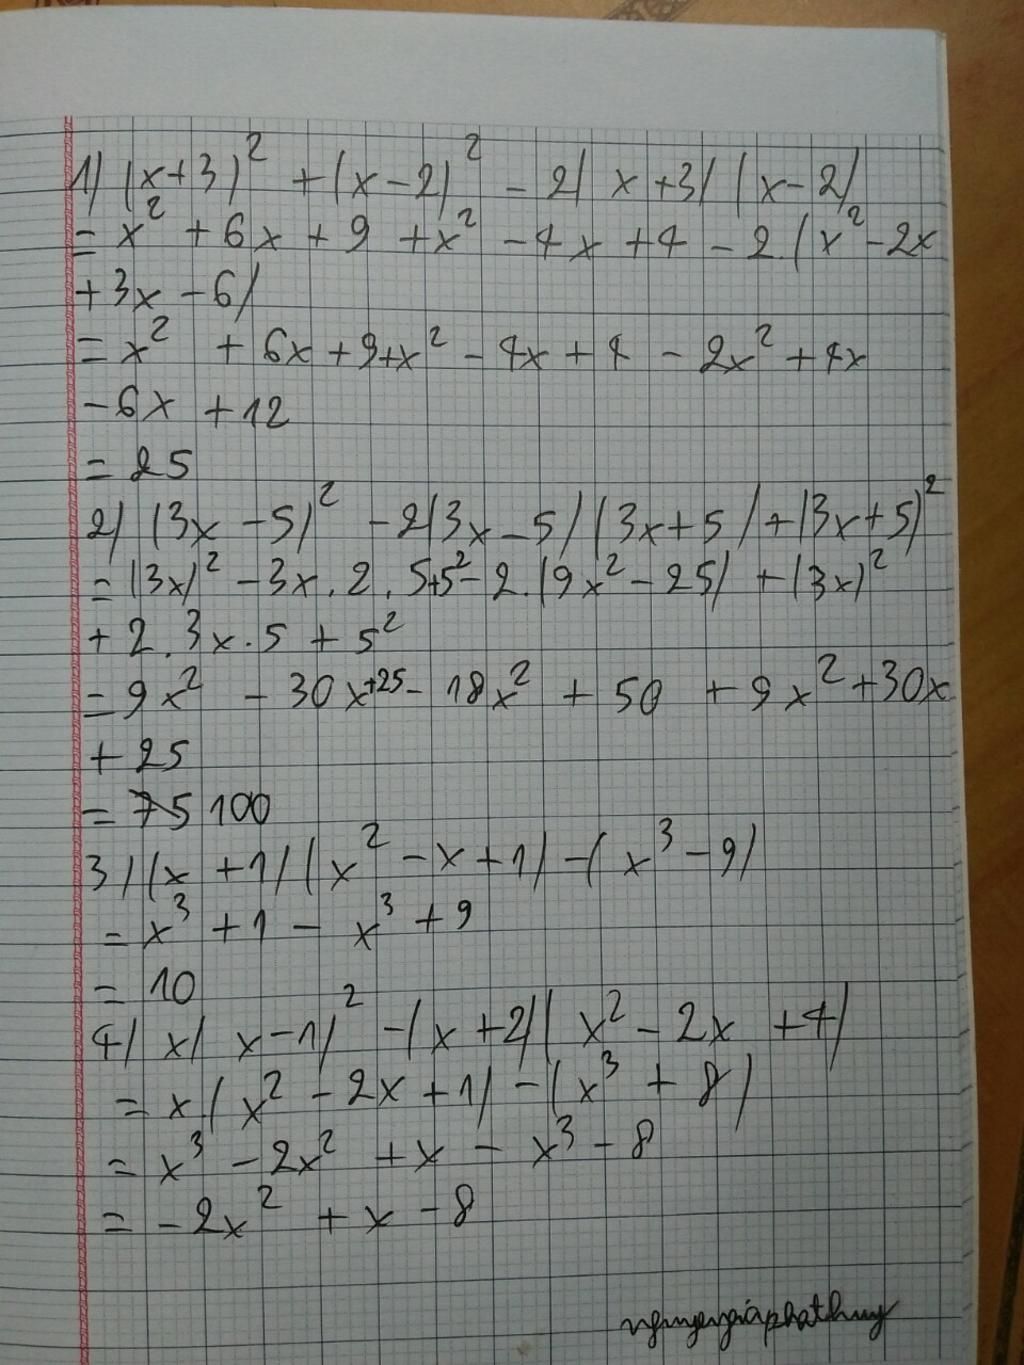 1) (x+3)² + (x-2)² - 2(x+3)(x-2)
= x² + 6x + 9 + x² - 4x + 4 - 2.(x² - 2x
+ 3x - 6)
= x² + 6x + 9 + x² - 4x + 4 - 2x² + 4x
- 6x + 12
= 25
2) (3x - 5)² - 2(3x - 5)(3x + 5) + (3x + 5)²
= (3x)² - 3x . 2 . 5 + 5² - 2.(9x² - 25) + (3x)²
+ 2 . 3x . 5 + 5²
= 9x² - 30x + 25 - 18x² + 50 + 9x² + 30x
+ 25
= 75 100
3) (x + 1)(x² - x + 1) - (x³ - 9)
= x³ + 1 - x³ + 9
= 10
4) x(x - 1)² - (x + 2)(x² - 2x + 4)
= x(x² - 2x + 1) - (x³ + 8)
= x³ - 2x² + x - x³ - 8
= - 2x² + x - 8